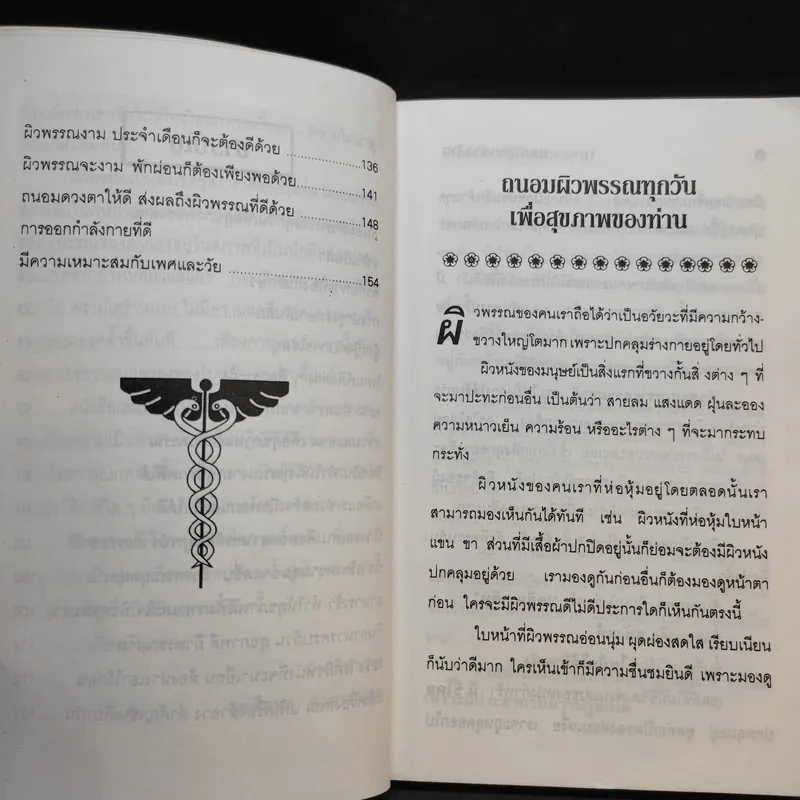 ผิวพรรณงาม ประจำเดือนก็จะต้องดีด้วย ........................ 136
ผิวพรรณจะงาม พักผ่อนก็ต้องเพียงพอด้วย ........................ 141
ถนอมดวงตาให้ดี ส่งผลถึงผิวพรรณที่ดีด้วย ........................ 148
การออกกำลังกายที่ดี
มีความเหมาะสมกับเพศและวัย ........................ 154
ถนอมผิวพรรณทุกวัน
เพื่อสุขภาพของท่าน
ผิวพรรณของคนเราถือได้ว่าเป็นอวัยวะที่มีความกว้าง-
ขวางใหญ่โตมาก เพราะปกคลุมร่างกายอยู่โดยทั่วไป
ผิวหนังของมนุษย์เป็นสิ่งแรกที่ขวางกั้นสิ่งต่าง ๆ ที่
จะมาปะทะก่อนอื่น เป็นต้นว่า สายลม แสงแดด ฝุ่นละออง
ความหนาวเย็น ความร้อน หรืออะไรต่าง ๆ ที่จะมากระทบ
กระทั่ง
ผิวหนังของคนเราที่ห่อหุ้มอยู่โดยตลอดนั้นเรา
สามารถมองเห็นกันได้ทันที เช่น ผิวหนังที่ห่อหุ้มใบหน้า
แขน ขา ส่วนที่มีเสื้อผ้าปกปิดอยู่นั้นก็ย่อมจะต้องมีผิวหนัง
ปกคลุมอยู่ด้วย เรามองดูกันก่อนอื่นก็ต้องมองดูหน้าตา
ก่อน ใครจะมีผิวพรรณดีไม่ดีประการใดก็เห็นกันตรงนี้
ใบหน้าที่ผิวพรรณอ่อนนุ่ม ผุดผ่องสดใส เรียบเนียน
ก็นับว่าดีมาก ใครเห็นเข้าก็มีความชื่นชมยินดี เพราะมองดู